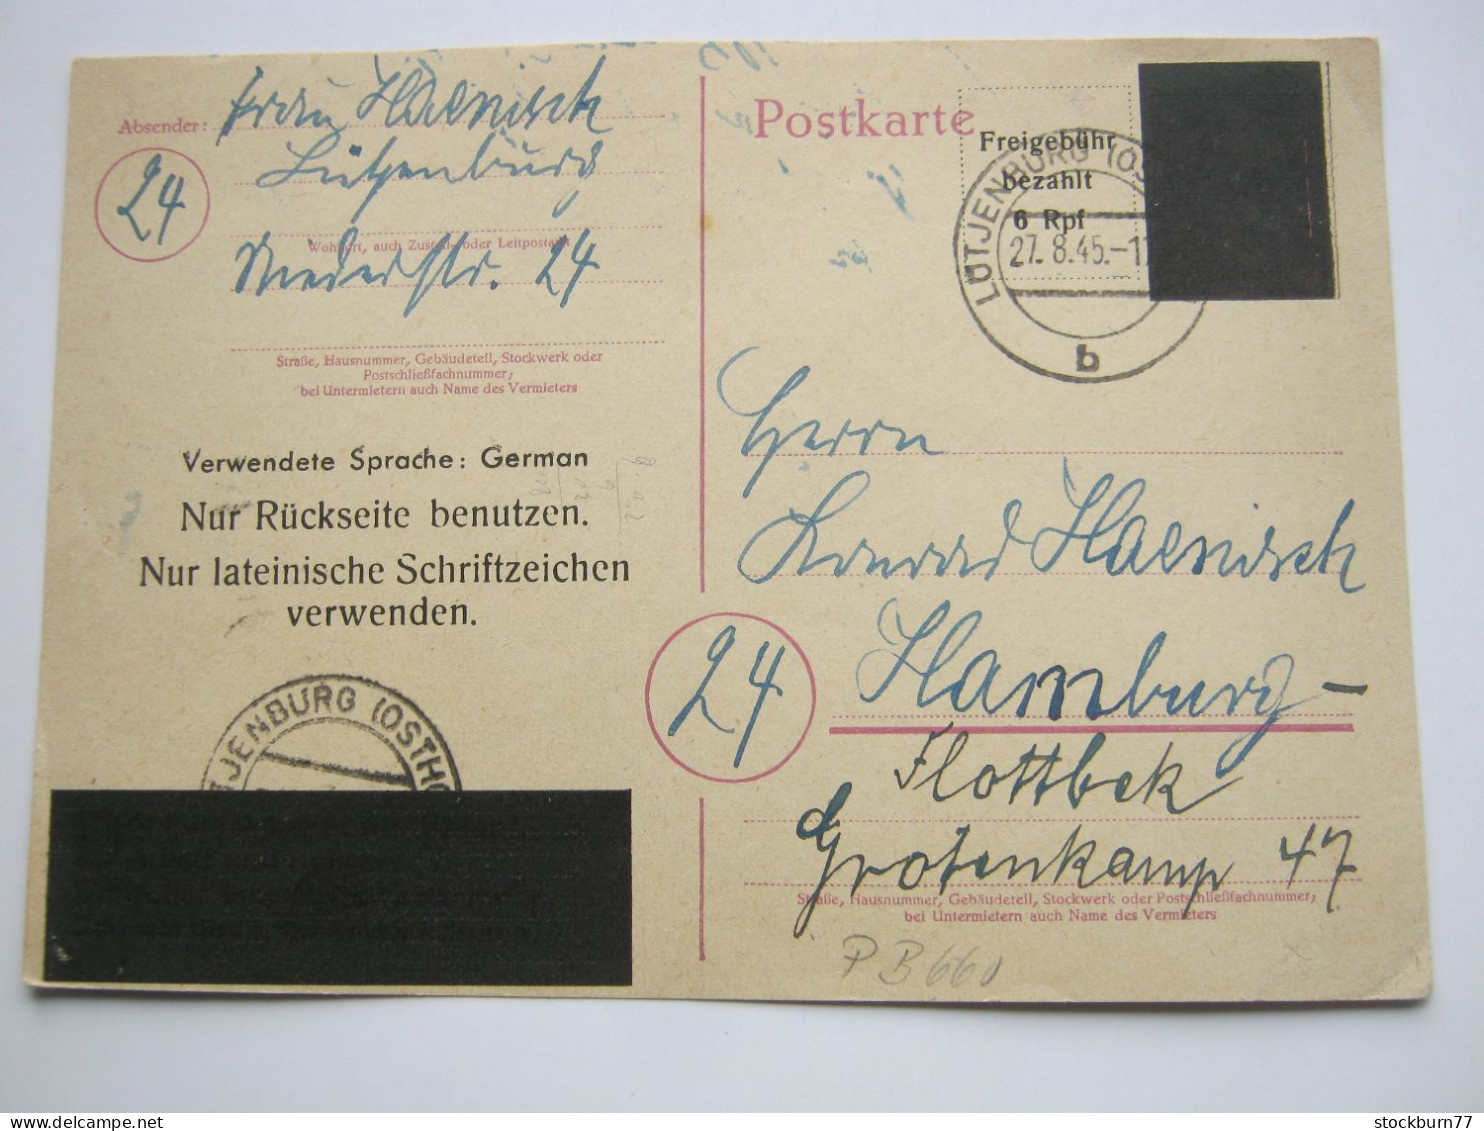 Absender: Frau Haenisch
Lütjenburg
Wohnort, auch Zustell- oder Leitpostamt
Niederstr. 24
24
Straße, Hausnummer, Gebäudeteil, Stockwerk oder
Postschließfachnummer;
bei Untermietern auch Name des Vermieters
Verwendete Sprache: German
Nur Rückseite benutzen.
Nur lateinische Schriftzeichen
verwenden.
TJENBURG (OSTHO
Postkarte
Freigebühr
bezahlt
6 Rpf
LÜTJENBURG (OS
27. 8.45.-1
b
Herrn
Konrad Haenisch
24
Hamburg-
Flottbek
Grotenkamp 47
Straße, Hausnummer, Gebäudeteil, Stockwerk oder Postschließfachnummer;
bei Untermietern auch Name des Vermieters
P B 660
stockburn77